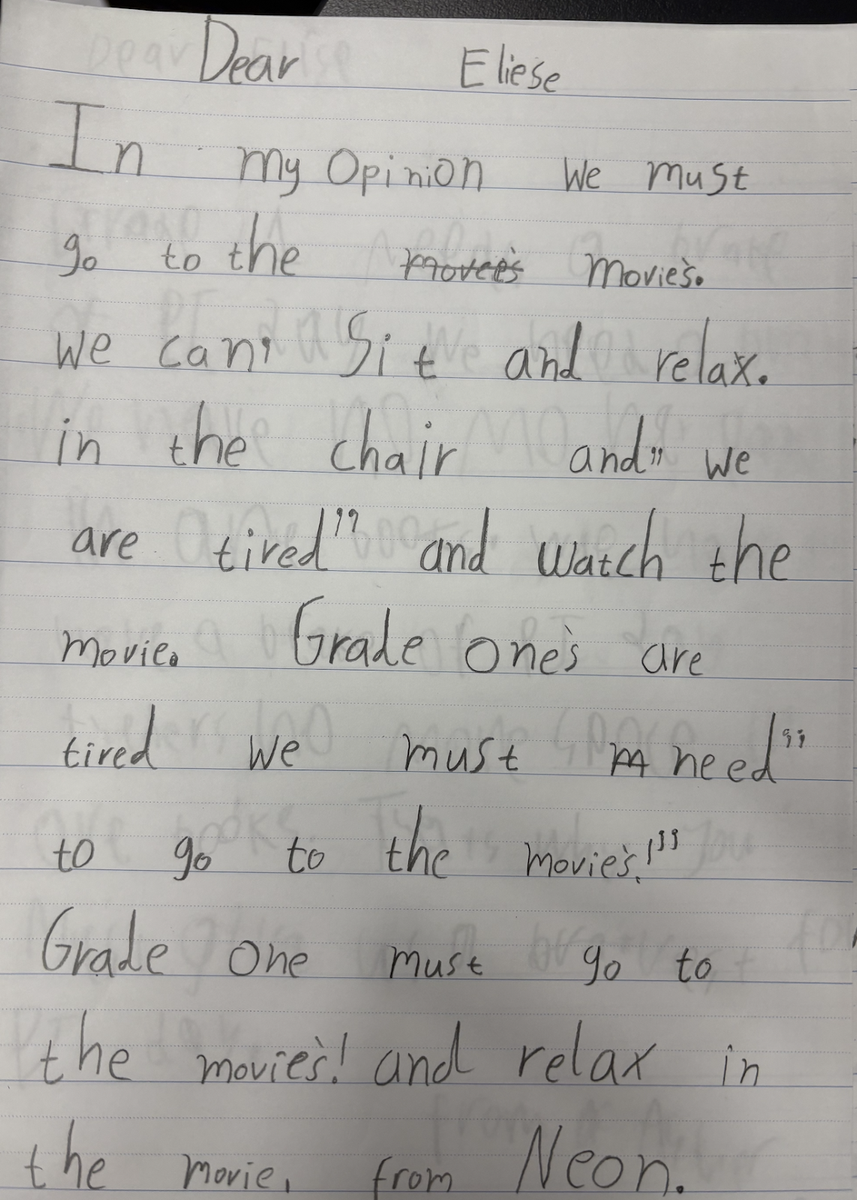 Dear Eliese
In my Opinion we must
go to the movees movie's.
we can, Sit and relax.
in the chair and" we
are tired" and watch the
movie. Grade one's are
tired we must need"
to go to the movie's!"
Grade One must go to
the movie's! and relax in
the movie, from Neon.